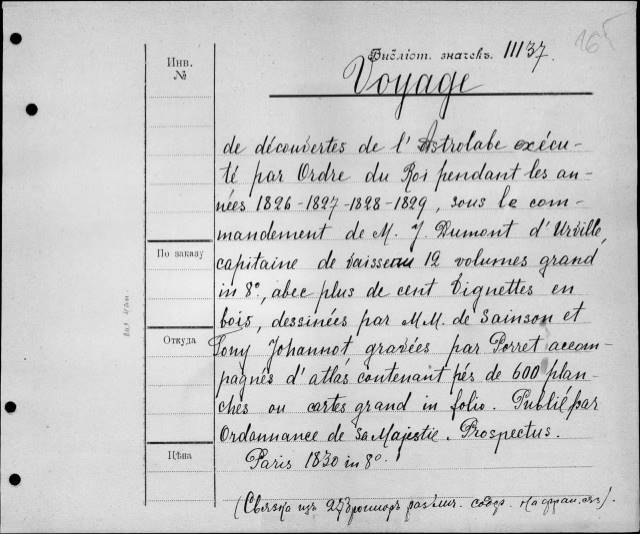 165
Библіот. значекъ. 11137.
Инв.
№
Voyage
de découvertes de l'Astrolabe exécu-
té par Ordre du Roi pendant les an-
nées 1826-1827-1828-1829, sous le com-
mandement de M. J. Dumont d'Urville,
По заказу
capitaine de vaisseau 12 volumes grand
in 8º, avec plus de cent Vignettes en
bois, dessinées par MM. de Sainson et
Откуда
Tony Johannot gravées par Porret accom-
pagnés d'atlas contenant pés de 600 plan-
ches ou cartes grand in folio. Publié par
Ordonnance de Sa Majestie. Prospectus.
Цѣна
Paris 1830 in 8º.
(Связка изъ 27 брошюръ различ. содер. на фран. яз.)